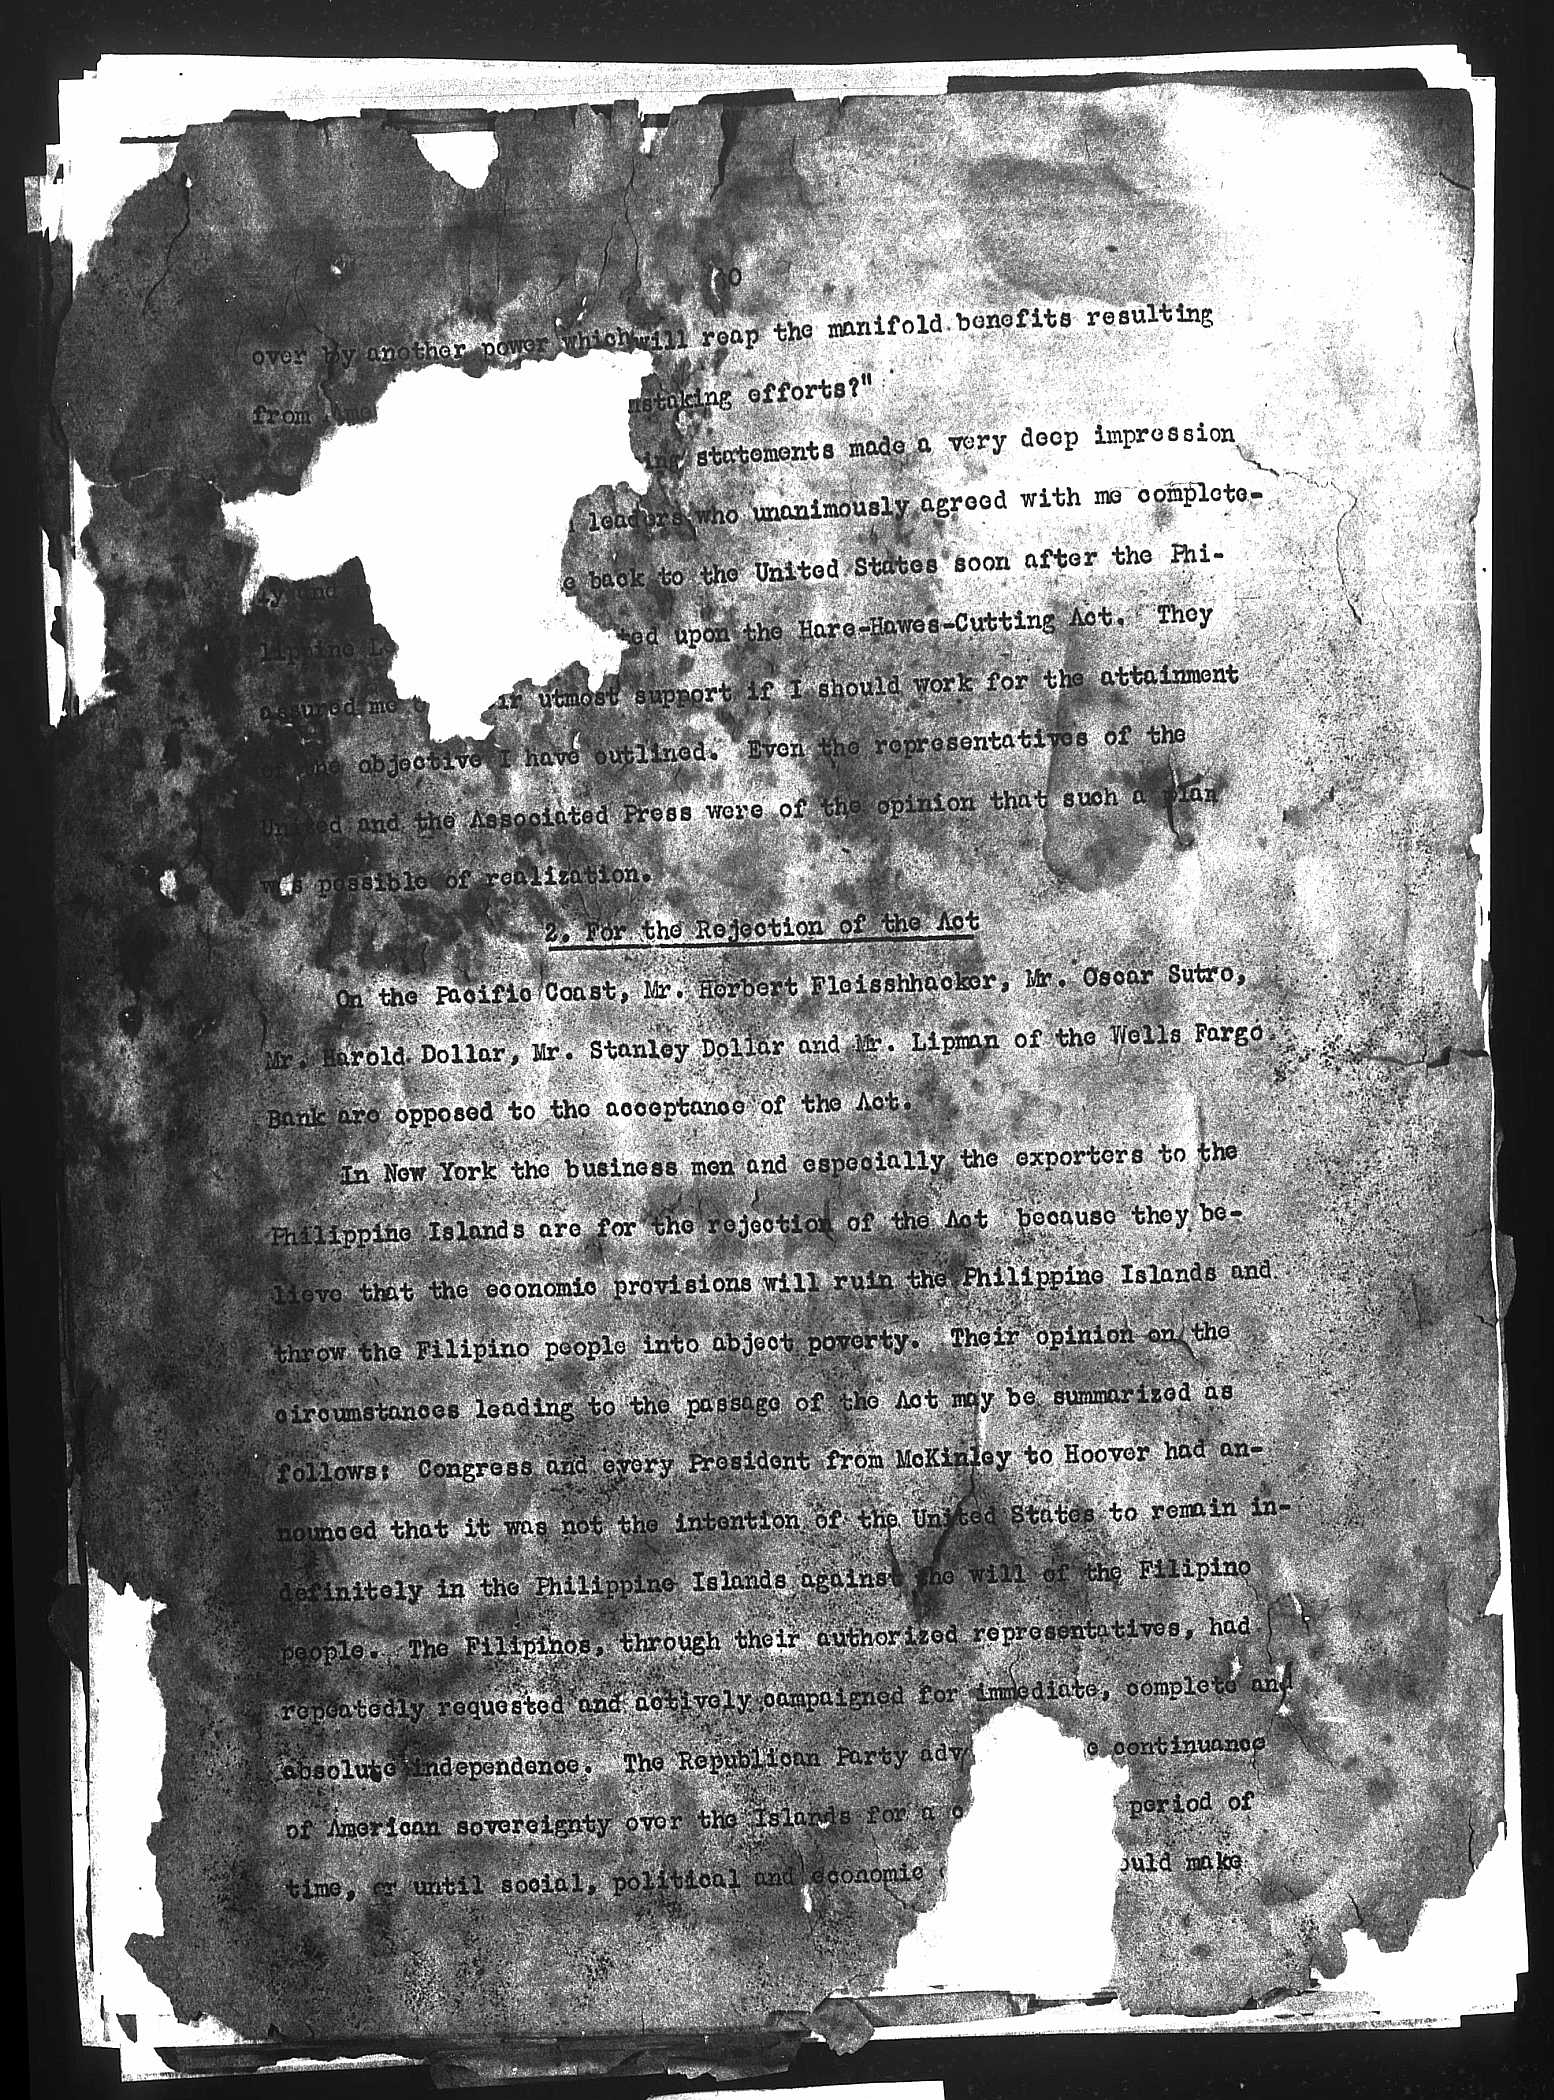 over by another power which will reap the manifold benefits resulting
from efforts?"
statements made a very deep impression
leaders who unanimously agreed with me complete-
ly and back to the United States soon after the Phi-
lippine upon the Hare-Hawes-Cutting Act. They
assured me utmost support if I should work for the attainment
of the objective I have outlined. Even the representatives of the
United and the Associated Press were of the opinion that such a plan
was possible of realization.
2. For the Rejection of the Act
On the Pacific Coast, Mr. Herbert Fleisshhacker, Mr. Oscar Sutro,
Mr. Harold Dollar, Mr. Stanley Dollar and Mr. Lipman of the Wells Fargo
Bank are opposed to the acceptance of the Act.
In New York the business men and especially the exporters to the
Philippine Islands are for the rejection of the Act because they be-
lieve that the economic provisions will ruin the Philippine Islands and
throw the Filipino people into abject poverty. Their opinion on the
circumstances leading to the passage of the Act may be summarized as
follows: Congress and every President from McKinley to Hoover had an-
nounced that it was not the intention of the United States to remain in-
definitely in the Philippine Islands against the will of the Filipino
people. The Filipinos, through their authorized representatives, had
repeatedly requested and actively campaigned for immediate, complete and
absolute independence. The Republican Party continuance
of American sovereignty over the Islands for a period of
time, or until social, political and economic make